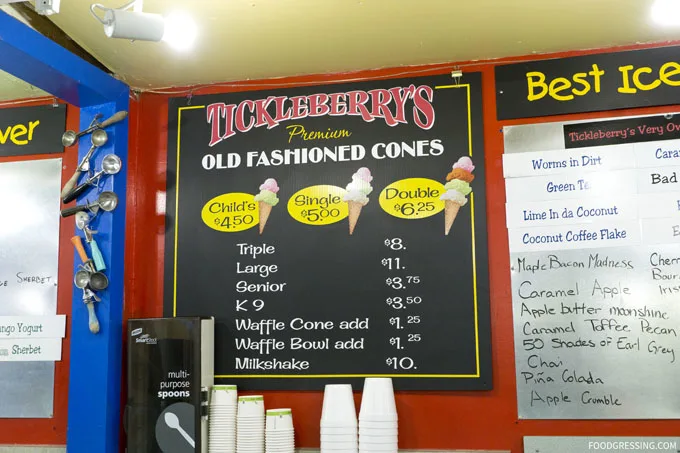 ver
E SHERBET
ngo Yogurt
Sherbet
SmartStock
multi-
purpose
spoons
TICKLEBERRY'S
Premium
OLD FASHIONED CONES
Child's
$4.50
Single
$5.00
Double
$6.25
Triple $8.
Large $11.
Senior $3.75
K 9 $3.50
Waffle Cone add $1.25
Waffle Bowl add $1.25
Milkshake $10.
Best Ice
Tickleberry's Very Ow
Worms in Dirt
Cara
Green Te
Bad
Lime In da Coconut
Coconut Coffee Flake
E
Maple Bacon Madness
Cherr
Bour
Caramel Apple
Iris
Apple butter moonshine
Caramel Toffee Pecan
50 Shades of Earl Grey
Chai
Piña Colada
Apple Crumble
FOODGRESSING.COM